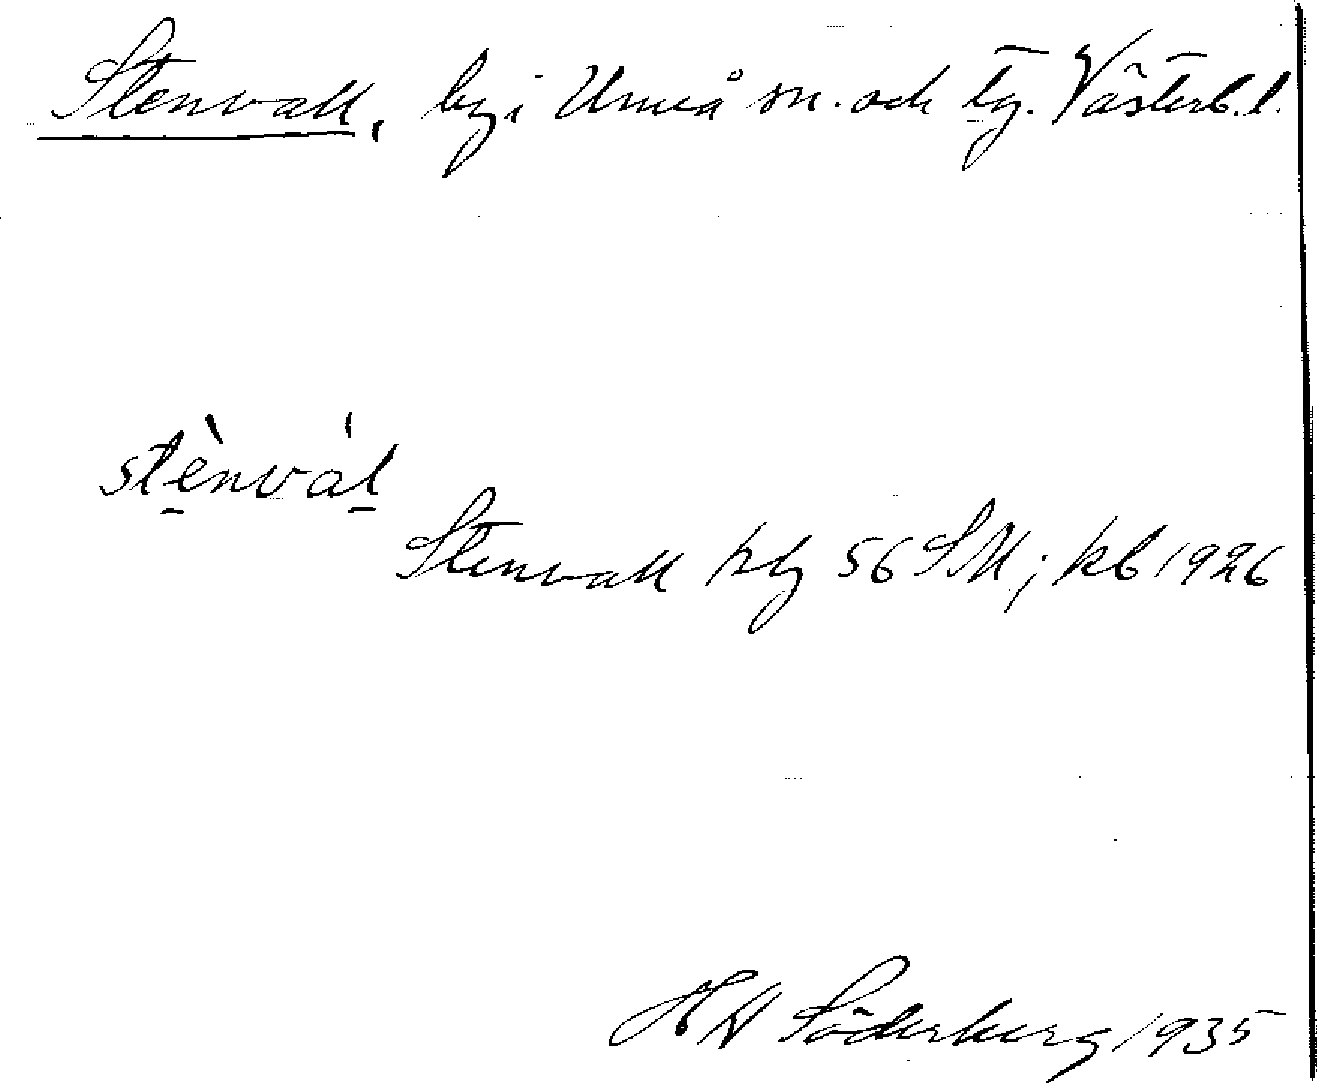 Stenvall, by i Umeå sn. och tg. Västerb. l.
stènvál
Stenvall kby 56 SM; kb 1926
Söderberg 1935